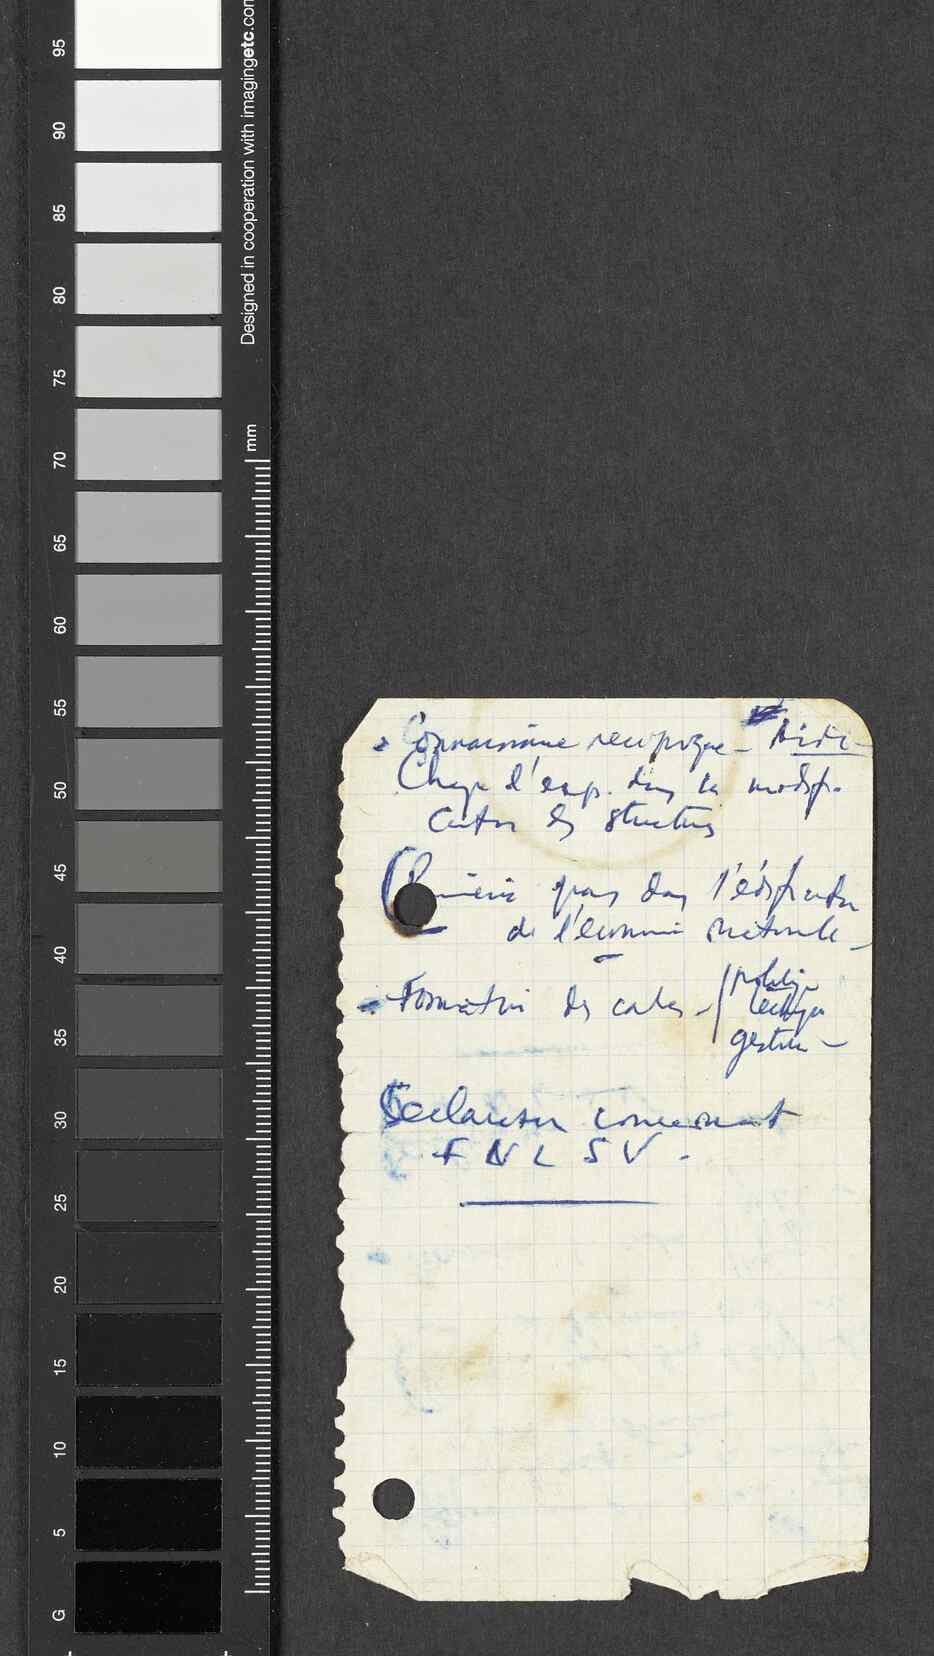 95
90
85
80
75
70
65
60
55
50
45
40
35
30
25
20
15
10
5
G
Designed in cooperation with imagingetc.com
mm
Connaissance réciproque –
d'exp. dans la modifi-
cation des structures
dans l'édification
de l'économie nationale –
Formation des cadres –
gestion –
Déclaration concernant
FNLSV.